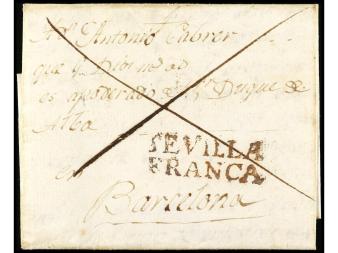 Antonio Cabrer
que
es apoderado Duque de
Alba
SEVILLA
FRANCA
en
Barcelona